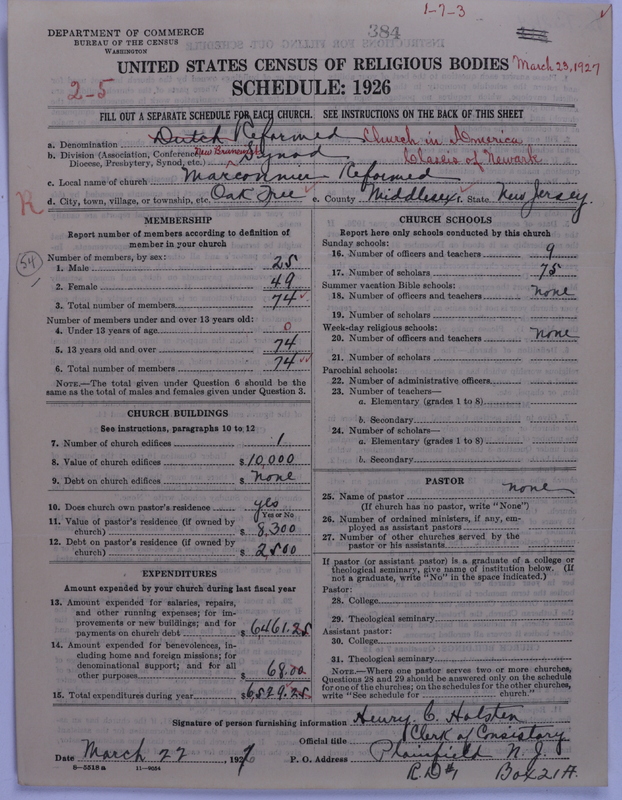 1-7-3
384
DEPARTMENT OF COMMERCE
BUREAU OF THE CENSUS
WASHINGTON
UNITED STATES CENSUS OF RELIGIOUS BODIES
March 23, 1927
2-5
SCHEDULE: 1926
FILL OUT A SEPARATE SCHEDULE FOR EACH CHURCH. SEE INSTRUCTIONS ON THE BACK OF THIS SHEET
a. Denomination Dutch Reformed Church in America
b. Division (Association, Conference, New Brunswick Synod Classis of Newark
Diocese, Presbytery, Synod, etc.)
c. Local name of church Marconnier Reformed
R
d. City, town, village, or township, etc. Oak Tree e. County Middlesex f. State New Jersey.
MEMBERSHIP
Report number of members according to definition of
member in your church
54
Number of members, by sex:
1. Male 25
2. Female 49
3. Total number of members 74
Number of members under and over 13 years old:
4. Under 13 years of age 0
5. 13 years old and over 74
6. Total number of members 74
NOTE.—The total given under Question 6 should be the
same as the total of males and females given under Question 3.
CHURCH BUILDINGS
See instructions, paragraphs 10 to 12
7. Number of church edifices 1
8. Value of church edifices $10,000
9. Debt on church edifices $ none
10. Does church own pastor's residence yes
(Yes or No)
11. Value of pastor's residence (if owned by
church) $ 8,300
12. Debt on pastor's residence (if owned by
church) $ 2500
EXPENDITURES
Amount expended by your church during last fiscal year
13. Amount expended for salaries, repairs,
and other running expenses; for im-
provements or new buildings; and for
payments on church debt $ 6461.25
14. Amount expended for benevolences, in-
cluding home and foreign missions; for
denominational support; and for all
other purposes $ 68.00
15. Total expenditures during year $6529.25
CHURCH SCHOOLS
Report here only schools conducted by this church
Sunday schools:
16. Number of officers and teachers 9
17. Number of scholars 75
Summer vacation Bible schools:
18. Number of officers and teachers none
19. Number of scholars
Week-day religious schools:
20. Number of officers and teachers none
21. Number of scholars
Parochial schools:
22. Number of administrative officers
23. Number of teachers—
a. Elementary (grades 1 to 8)
b. Secondary
24. Number of scholars—
a. Elementary (grades 1 to 8)
b. Secondary
PASTOR
25. Name of pastor none
(If church has no pastor, write "None")
26. Number of ordained ministers, if any, em-
ployed as assistant pastors
27. Number of other churches served by the
pastor or his assistants
If pastor (or assistant pastor) is a graduate of a college or
theological seminary, give name of institution below. (If
not a graduate, write "No" in the space indicated.)
Pastor:
28. College
29. Theological seminary
Assistant pastor:
30. College
31. Theological seminary
NOTE.—Where one pastor serves two or more churches,
Questions 28 and 29 should be answered only on the schedule
for one of the churches; on the schedules for the other churches,
write "See schedule for church."
Signature of person furnishing information Henry C. Holsten
Official title Clerk of Consistory
Date March 22, 1927 P. O. Address Plainfield N. J.
8—5518a 11—9054
R.D#1 Box 21 A.